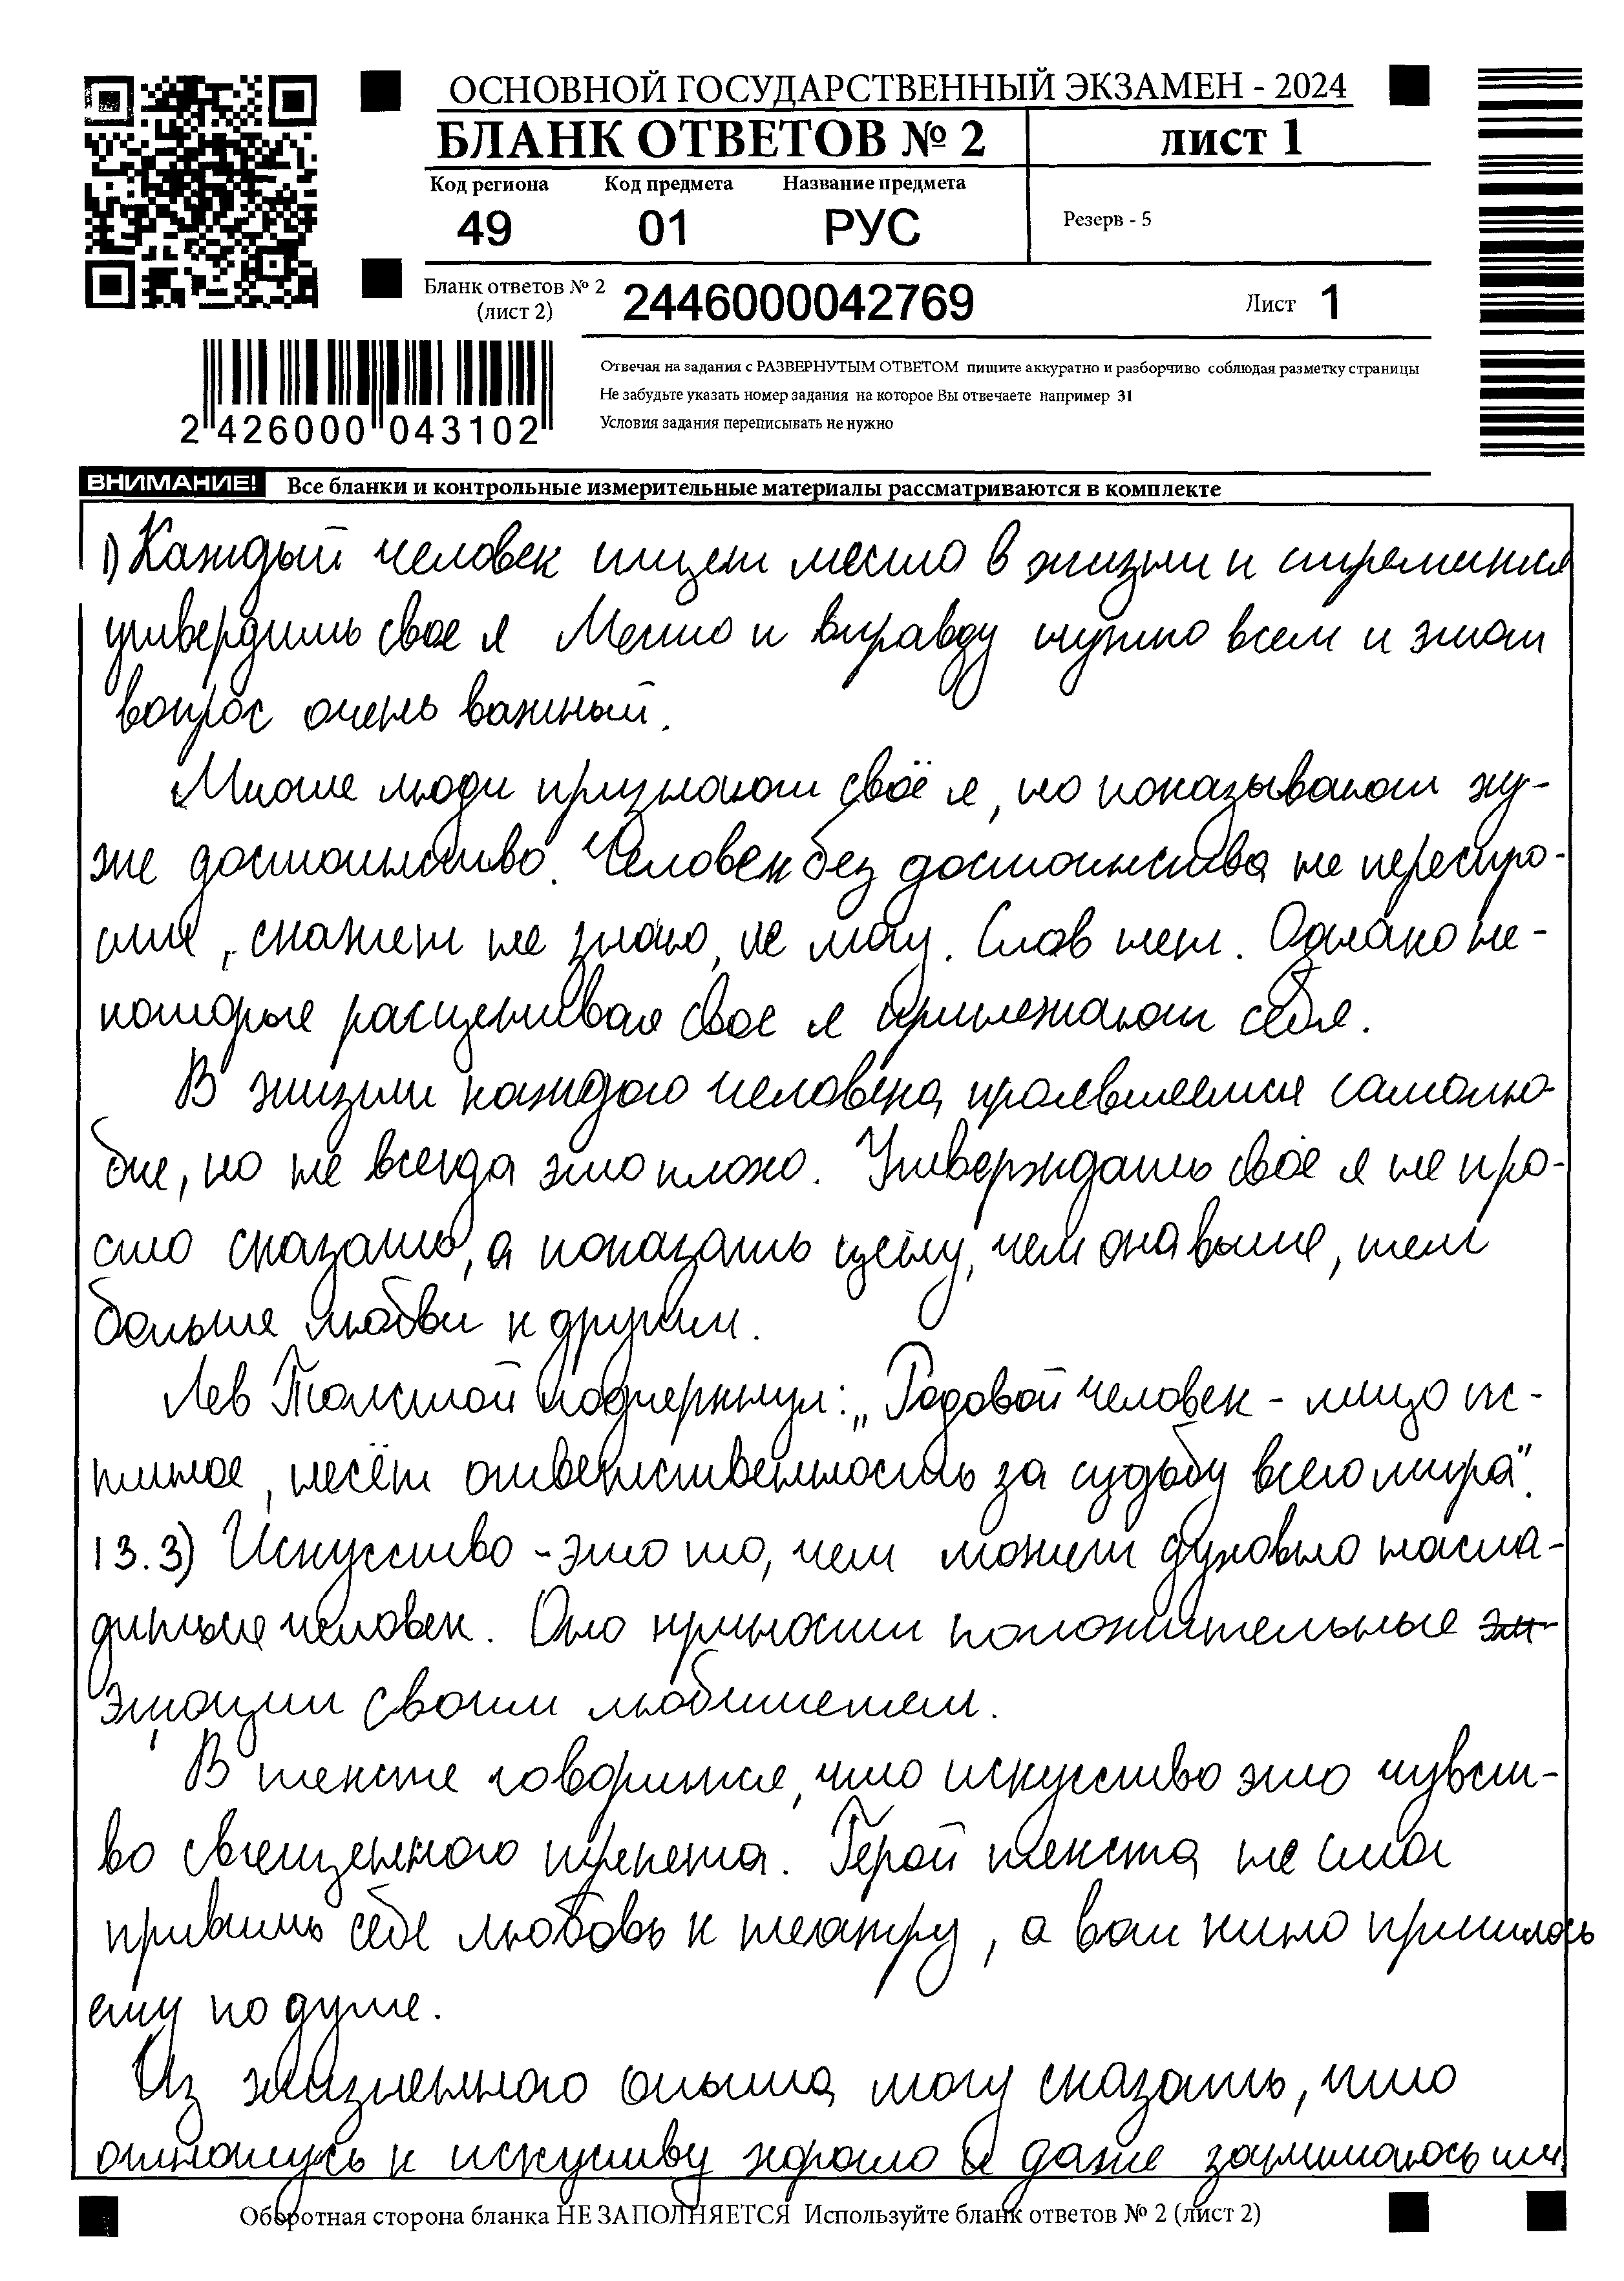 ОСНОВНОЙ ГОСУДАРСТВЕННЫЙ ЭКЗАМЕН - 2024
БЛАНК ОТВЕТОВ № 2
лист 1
Код региона Код предмета Название предмета
49 01 РУС
Резерв - 5
Бланк ответов № 2
(лист 2)
2446000042769
Лист 1
2 426000 043102
Отвечая на задания с РАЗВЕРНУТЫМ ОТВЕТОМ пишите аккуратно и разборчиво соблюдая разметку страницы
Не забудьте указать номер задания на которое Вы отвечаете например 31
Условия задания переписывать не нужно
ВНИМАНИЕ! Все бланки и контрольные измерительные материалы рассматриваются в комплекте
1) Каждый человек ищет место в жизни и стремится
утвердить свое я Место и вправду нужно всем и этот
вопрос очень важный.
Многие люди признают своё я, но показывают ху-
же достоинство. Человек без достоинства не переспро-
сит, скажет не знаю, не могу. Слов нет. Однако не-
которые расценивая свое я принежают себя.
В жизни каждого человека проявляется самолю-
бие, но не всегда это плохо. Утверждать своё я не про-
сто сказать, а показать цену, чем она выше, тем
больше любви к другим.
Лев Толстой подчеркнул: „Рядовой человек - лицо ис-
тиное, несёт ответственность за судьбу всего мира".
13.3) Искусство - это то, чем может духовно насла-
диться человек. Оно приносит положительные эм-
эмоции своим любителем.
В тексте говорится, что искусство это чувст-
во священного трепета. Герой текста не смог
привить себе любовь к театру, а вот кино пришлось
ему по душе.
Из жизненного опыта могу сказать, что
отношусь к искуству хорошо и даже занимаюсь им.
Оборотная сторона бланка НЕ ЗАПОЛНЯЕТСЯ Используйте бланк ответов № 2 (лист 2)